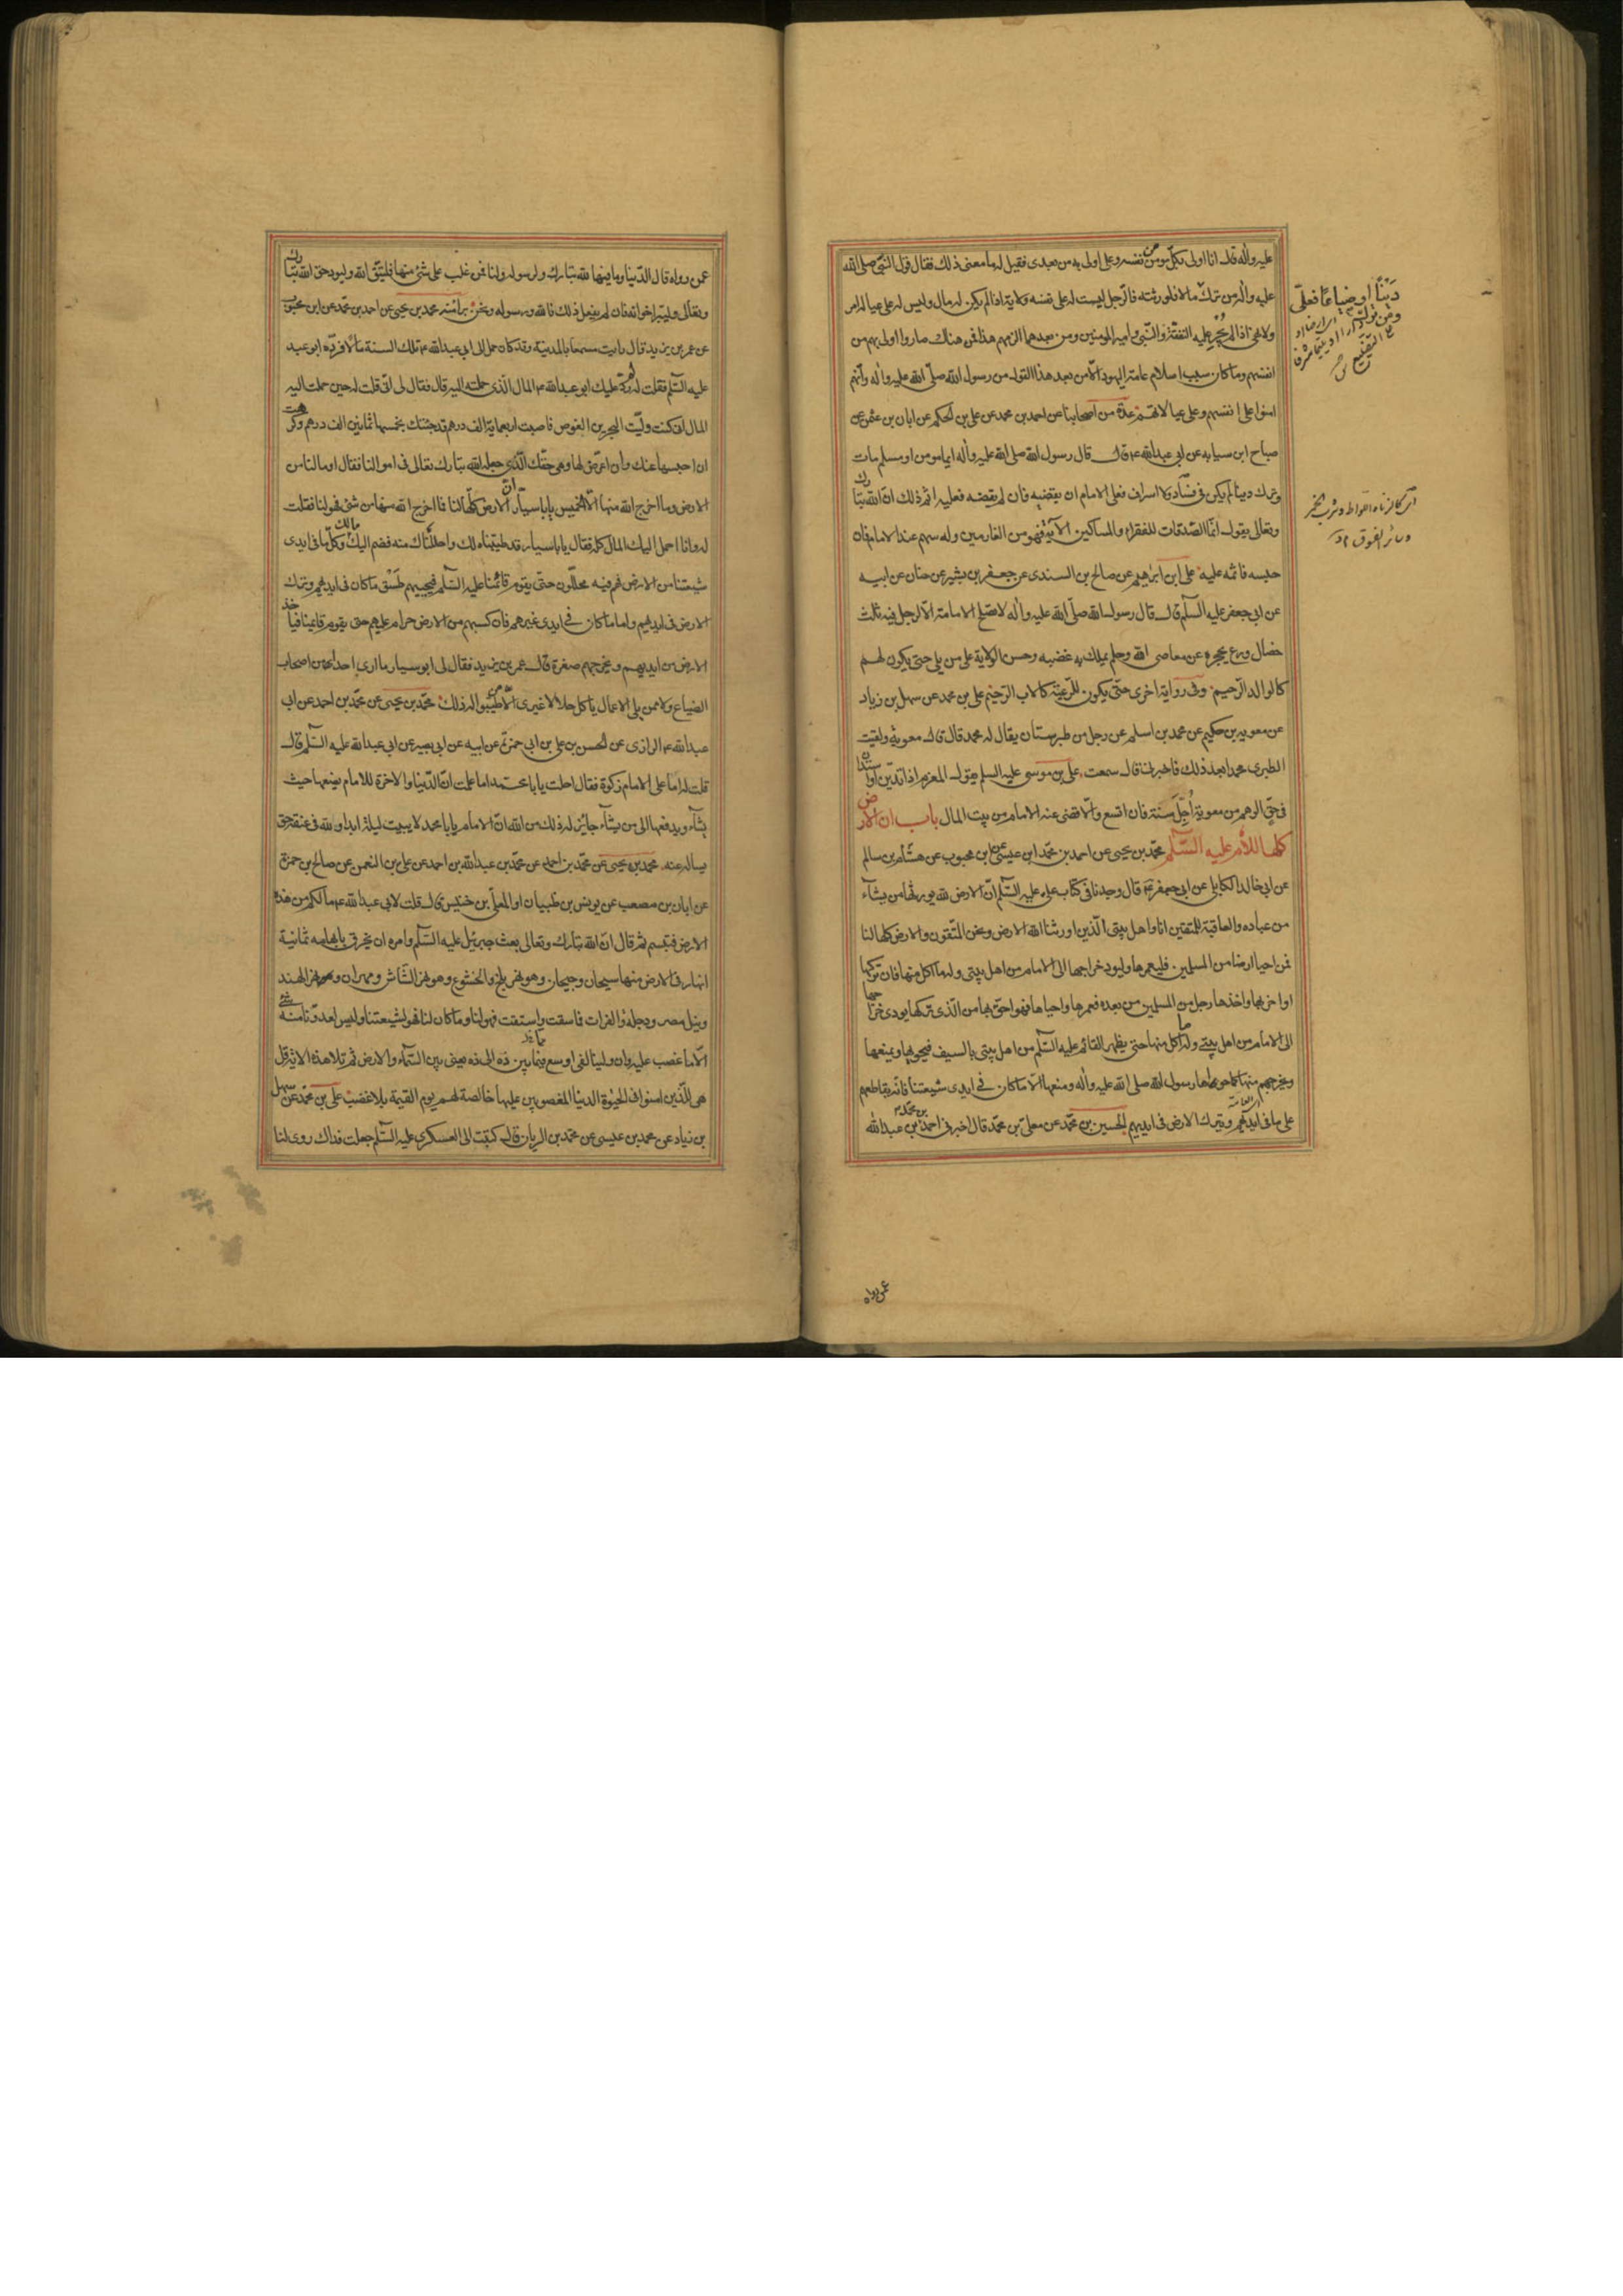 عليه وآله قال انا اولى بكل مؤمن من نفسه وعلى اولى به من بعدى فقيل له ما معنى ذلك فقال قول النبى صلى الله
عليه وآله من ترك مالا فلورثته فالرجل ليست له على نفسه ولاية اذا لم يكن له مال وليس له على عياله امر
ولا نهى اذا لم يُجْرِ عليه النفقة والنبى وامير المومنين ومن بعدهما الزمهم هذا فمن هناك صاروا اولى بهم من
انفسهم وما كان سبب اسلام عامة اليهود الا من بعد هذا القول من رسول الله صلى الله عليه وآله وانهم
امنوا على انفسهم وعلى عيالاتهم عدة من اصحابنا عن احمد بن محمد عن على بن الحكم عن ابان بن عثمن عن
صباح ابن سيابه عن ابى عبدالله ع قال قال رسول الله صلى الله عليه وآله ايما مومن او مسلم مات
وترك دينا لم يكن فى فساد ولا اسراف فعلى الامام ان يقضيه فان لم يقضه فعليه اثم ذلك ان الله تبارك
وتعالى يقول انما الصدقات للفقراء والمساكين الآية فهو من الغارمين وله سهم عند الامام فان
حبسه فاثمه عليه على ابن ابراهيم عن صالح بن السندى عن جعفر بن بشير عن حنان عن ابيه
عن ابى جعفر عليه السلم قال قال رسول الله صلى الله عليه وآله لا تصلح الامامة الا لرجل فيه ثلث
خصال ورع يحجزه عن معاصى الله وحلم يملك به غضبه وحسن الولاية على من يلى حتى يكون لهم
كالوالد الرحيم وفى رواية اخرى حتى يكون للرعية كالاب الرحيم على بن محمد عن سهل بن زياد
عن معويه بن حكيم عن محمد بن اسلم عن رجل من طبرستان يقال له محمد قال قال معويه ولقيت
الطبرى محمدا بعد ذلك فاخبرنى قال سمعت على بن موسى عليه السلم يقول المغرم اذا تديّن او استدان
فى حق الوهم من معوية أُجِّلَ سنة فان اتسع والا قضى عنه الامام من بيت المال باب ان الارض
كلها للأمام عليه السلم محمد بن يحيى عن احمد بن محمد ابن عيسى عن ابن محبوب عن هشام بن سالم
عن ابى خالد الكابلى عن ابى جعفر ع قال وجدنا فى كتاب على عليه السلم ان الارض لله يورثها من يشآء
من عباده والعاقبة للمتقين انا واهل بيتى الذين اورثنا الله الارض ونحن المتقون والارض كلها لنا
فمن احيا ارضا من المسلمين فليعمرها وليود خراجها الى الامام من اهل بيتى وله ما اكل منها فان تركها
او اخربها واخذها رجل من المسلمين من بعده فعمرها واحياها فهو احق بها من الذى تركها يودى خراجها
الى الامام من اهل بيتى وله ما اكل منها حتى يظهر القائم عليه السلم من اهل بيتى بالسيف فيحويها ويمنعها
ويخرجهم منها كما حويها رسول الله صلى الله عليه وآله ومنعها الا ما كان فى ايدى شيعتنا فانه يقاطعهم
على ما فى ايديهم ويترك الارض فى ايديهم الحسين بن محمد عن معلى بن محمد قال اخبرنى احمد بن محمد بن عبدالله
دَيْناً او ضياعًا فعلىّ
ومن ترك
اى كالزنا واللواط وشرب الخمر
عمن رواه
عمن رواه قال الدنيا وما فيها لله تبارك ولرسوله ولنا فمن غلب على شئ منها فليتق الله وليود حق الله تبارك
وتعالى وليبر اخوانه فان لم يفعل ذلك فالله ورسوله ونحن برآء منه محمد بن يحيى عن احمد بن محمد عن ابن محبوب
عن عمر بن يزيد قال رايت مسمعا بالمدينة وقد كان حمل الى ابى عبدالله ع تلك السنة مالا فرده ابو عبد
عليه السلم فقلت له لم رد عليك ابو عبدالله ع المال الذى حملته اليه قال فقال لى انى قلت له حين حملت اليه
المال انى كنت وليت البحرين الغوص فاصبت اربعماية الف درهم قد جئتك بخمسها ثمانين الف درهم وكرهت
ان احبسها عنك وان اعرض لها وهى حقك الذى جعله الله تبارك تعالى فى اموالنا فقال او ما لنا من
الارض وما اخرج الله منها الا الخمس يا باسيار ان الارض كلها لنا فما اخرج الله منها من شئ فهو لنا فقلت
له وانا احمل اليك المال كله فقال يا باسيار قد طيبناه لك واحللناك منه فضم اليك مالك وكل ما فى ايدى
شيعتنا من الارض فهم فيه محللون حتى يقوم قائمنا عليه السلم فيجبيهم طَسْق ما كان فى ايديهم ويترك
الارض فى ايديهم واما ما كان فى ايدى غيرهم فان كسبهم من الارض حرام عليهم حتى يقوم قايمنا فياخذ
الارض من ايديهم ويخرجهم صغرة قال عمر بن يزيد فقال لى ابو سيار ما ارى احدا من اصحاب
الضياع ولا ممن يلى الاعمال ياكل حلالا غيرى الا من طيبوا له ذلك محمد بن يحيى عن محمد بن احمد عن ابى
عبدالله الرازى عن الحسن بن على بن ابى حمزة عن ابيه عن ابى بصير عن ابى عبدالله عليه السلم قال
قلت له اما على الامام زكوة فقال احلت يا با محمد اما علمت ان الدنيا والاخرة للامام يضعها حيث
يشآء ويدفعها الى من يشآء جائز له ذلك من الله ان الامام يا با محمد لا يبيت ليلة ابدا ولله فى عنقه حق
يساله عنه محمد بن يحيى عن محمد بن احمد عن محمد بن عبدالله بن احمد عن على بن النعمن عن صالح بن حمزة
عن ابان بن مصعب عن يونس بن ظبيان او المعلى بن خنيس قال قلت لابى عبدالله ع ما لكم من هذه
الارض فتبسم ثم قال ان الله تبارك وتعالى بعث جبرئيل عليه السلم وامره ان يخرق بابهامه ثمانية
انهار فى الارض منها سيحان وجيحان وهو نهر بلخ والخشوع وهو نهر الشاش ومهران وهو نهر الهند
ونيل مصر ودجلة والفرات فما سقت واستقت فهو لنا وما كان لنا فهو لشيعتنا وليس لعدونا منه شئ
الا ما غصب عليه وان ولينا لفى اوسع فيما بين ذه الى ذه يعنى بين السماء والارض ثم تلا هذه الاية قل
هى للذين امنوا فى الحيوة الدنيا المغصوبين عليها خالصة لهم يوم القيمة بلا غضب على بن محمد عن سهل
بن زياد عن محمد بن عيسى عن محمد بن الريان قال كتبت الى العسكرى عليه السلم جعلت فداك روى لنا